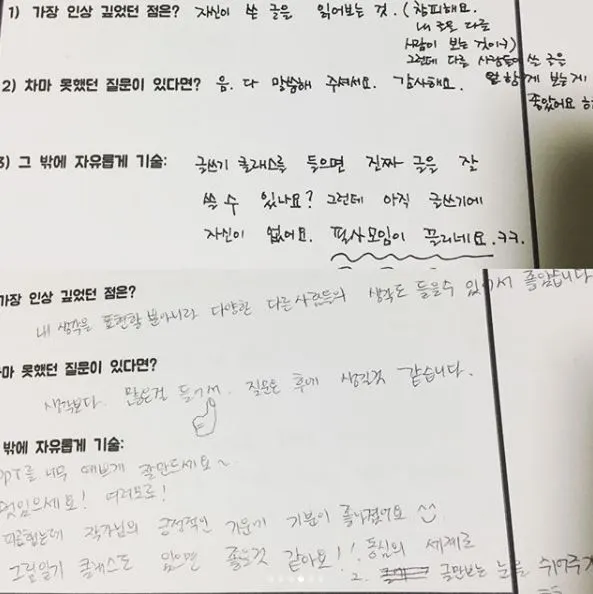 1) 가장 인상 깊었던 점은? 자신이 쓴 글을 읽어보는 것. (창피해요.
내 글을 다른
사람이 보는 것이ㅋ)
그런데 다른 사람들이 쓴 글은
2) 차마 못했던 질문이 있다면? 음. 다 말씀해 주셔서요. 감사해요. 함께 보는게
좋았어요
3) 그 밖에 자유롭게 기술: 글쓰기 클래스를 들으면 진짜 글을 잘
쓸 수 있나요? 그런데 아직 글쓰기에
자신이 없어요. 필사모임이 끌리네요. ㅋㅋ.
가장 인상 깊었던 점은?
내 생각을 표현할 뿐아니라 다양한 다른사람들의 생각도 들을수 있어서 좋았습니다
마 못했던 질문이 있다면?
생각보다. 많은걸 들어서. 질문은 후에 생길것 같습니다.
밖에 자유롭게 기술:
PPT를 너무 예쁘게 잘만드세요~
멋있으세요! 여러모로!
피곤했는데 작가님의 긍정적인 기운에 기분이 좋아졌어요
그림일기 클래스도 있으면 좋을것 같아요!! 동심의 세계로
2. 글만보는 눈을 쉬어주기